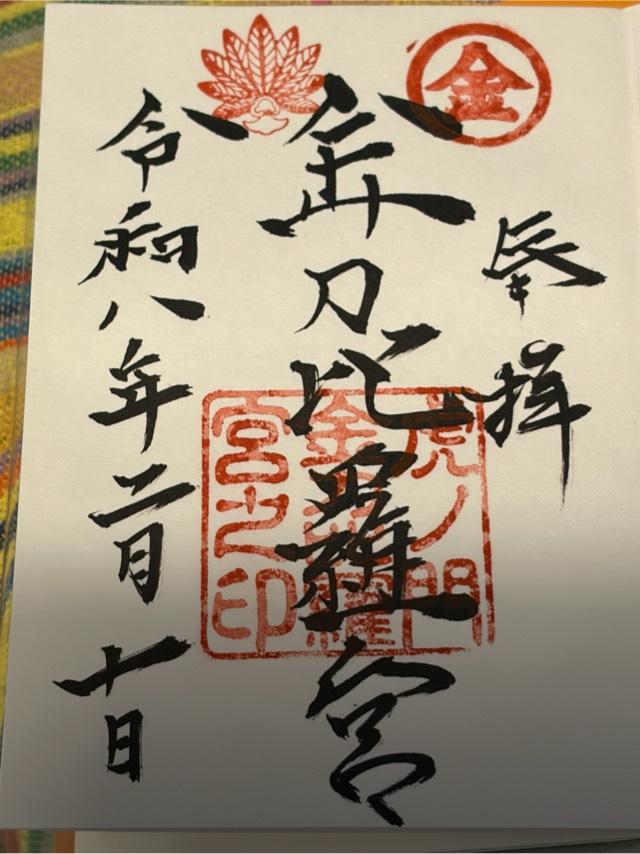 金
奉拝
金刀比羅宮
虎ノ門
金刀比羅
宮之印
令和八年二月十日